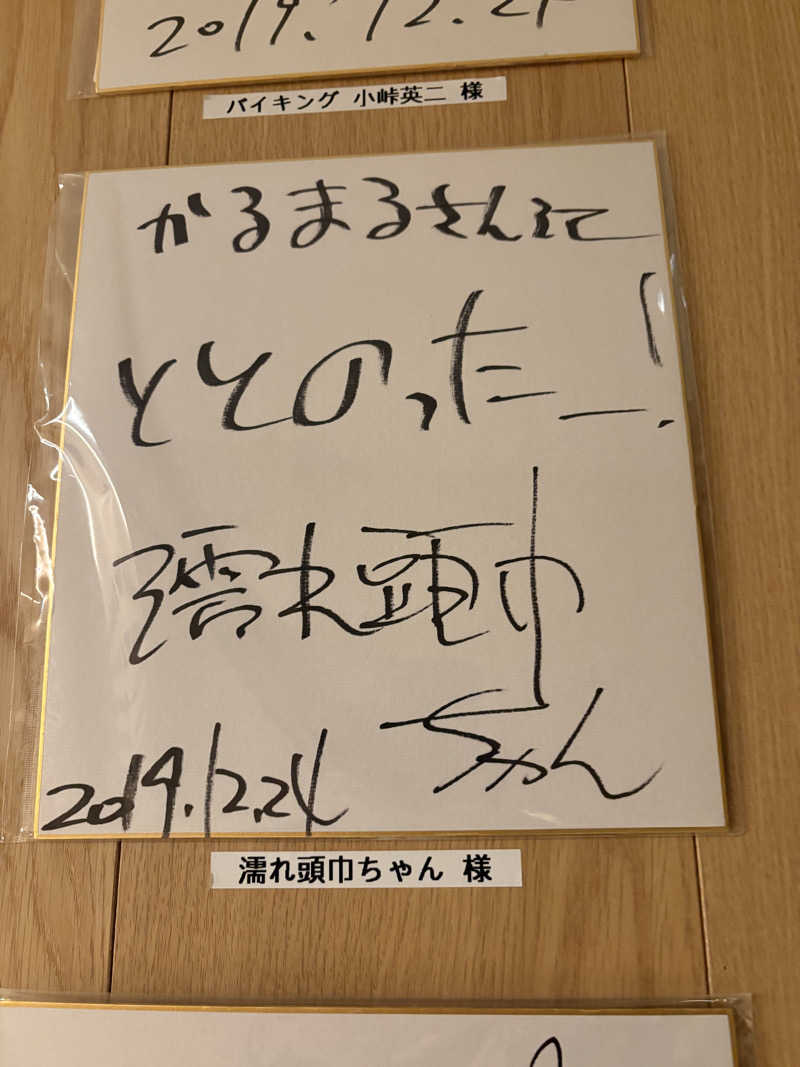 2019.12.24
バイキング 小峠英二 様
かるまるさんにて
ととのったー!
濡れ頭巾
ちゃん
2019.12.24
濡れ頭巾ちゃん 様